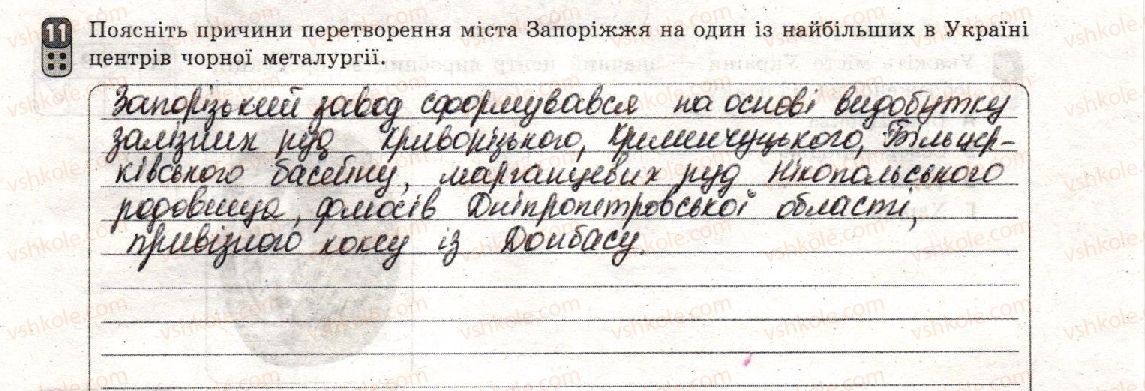 11 Поясніть причини перетворення міста Запоріжжя на один із найбільших в Україні
центрів чорної металургії.
Запорізький завод сформувався на основі видобутку
залізних руд Криворізького, Кременчуцького, Білоцер-
ківського басейну, марганцевих руд Нікопольського
родовища, флюсів Дніпропетровської області,
привізного коксу із Донбасу.
vshkole.com